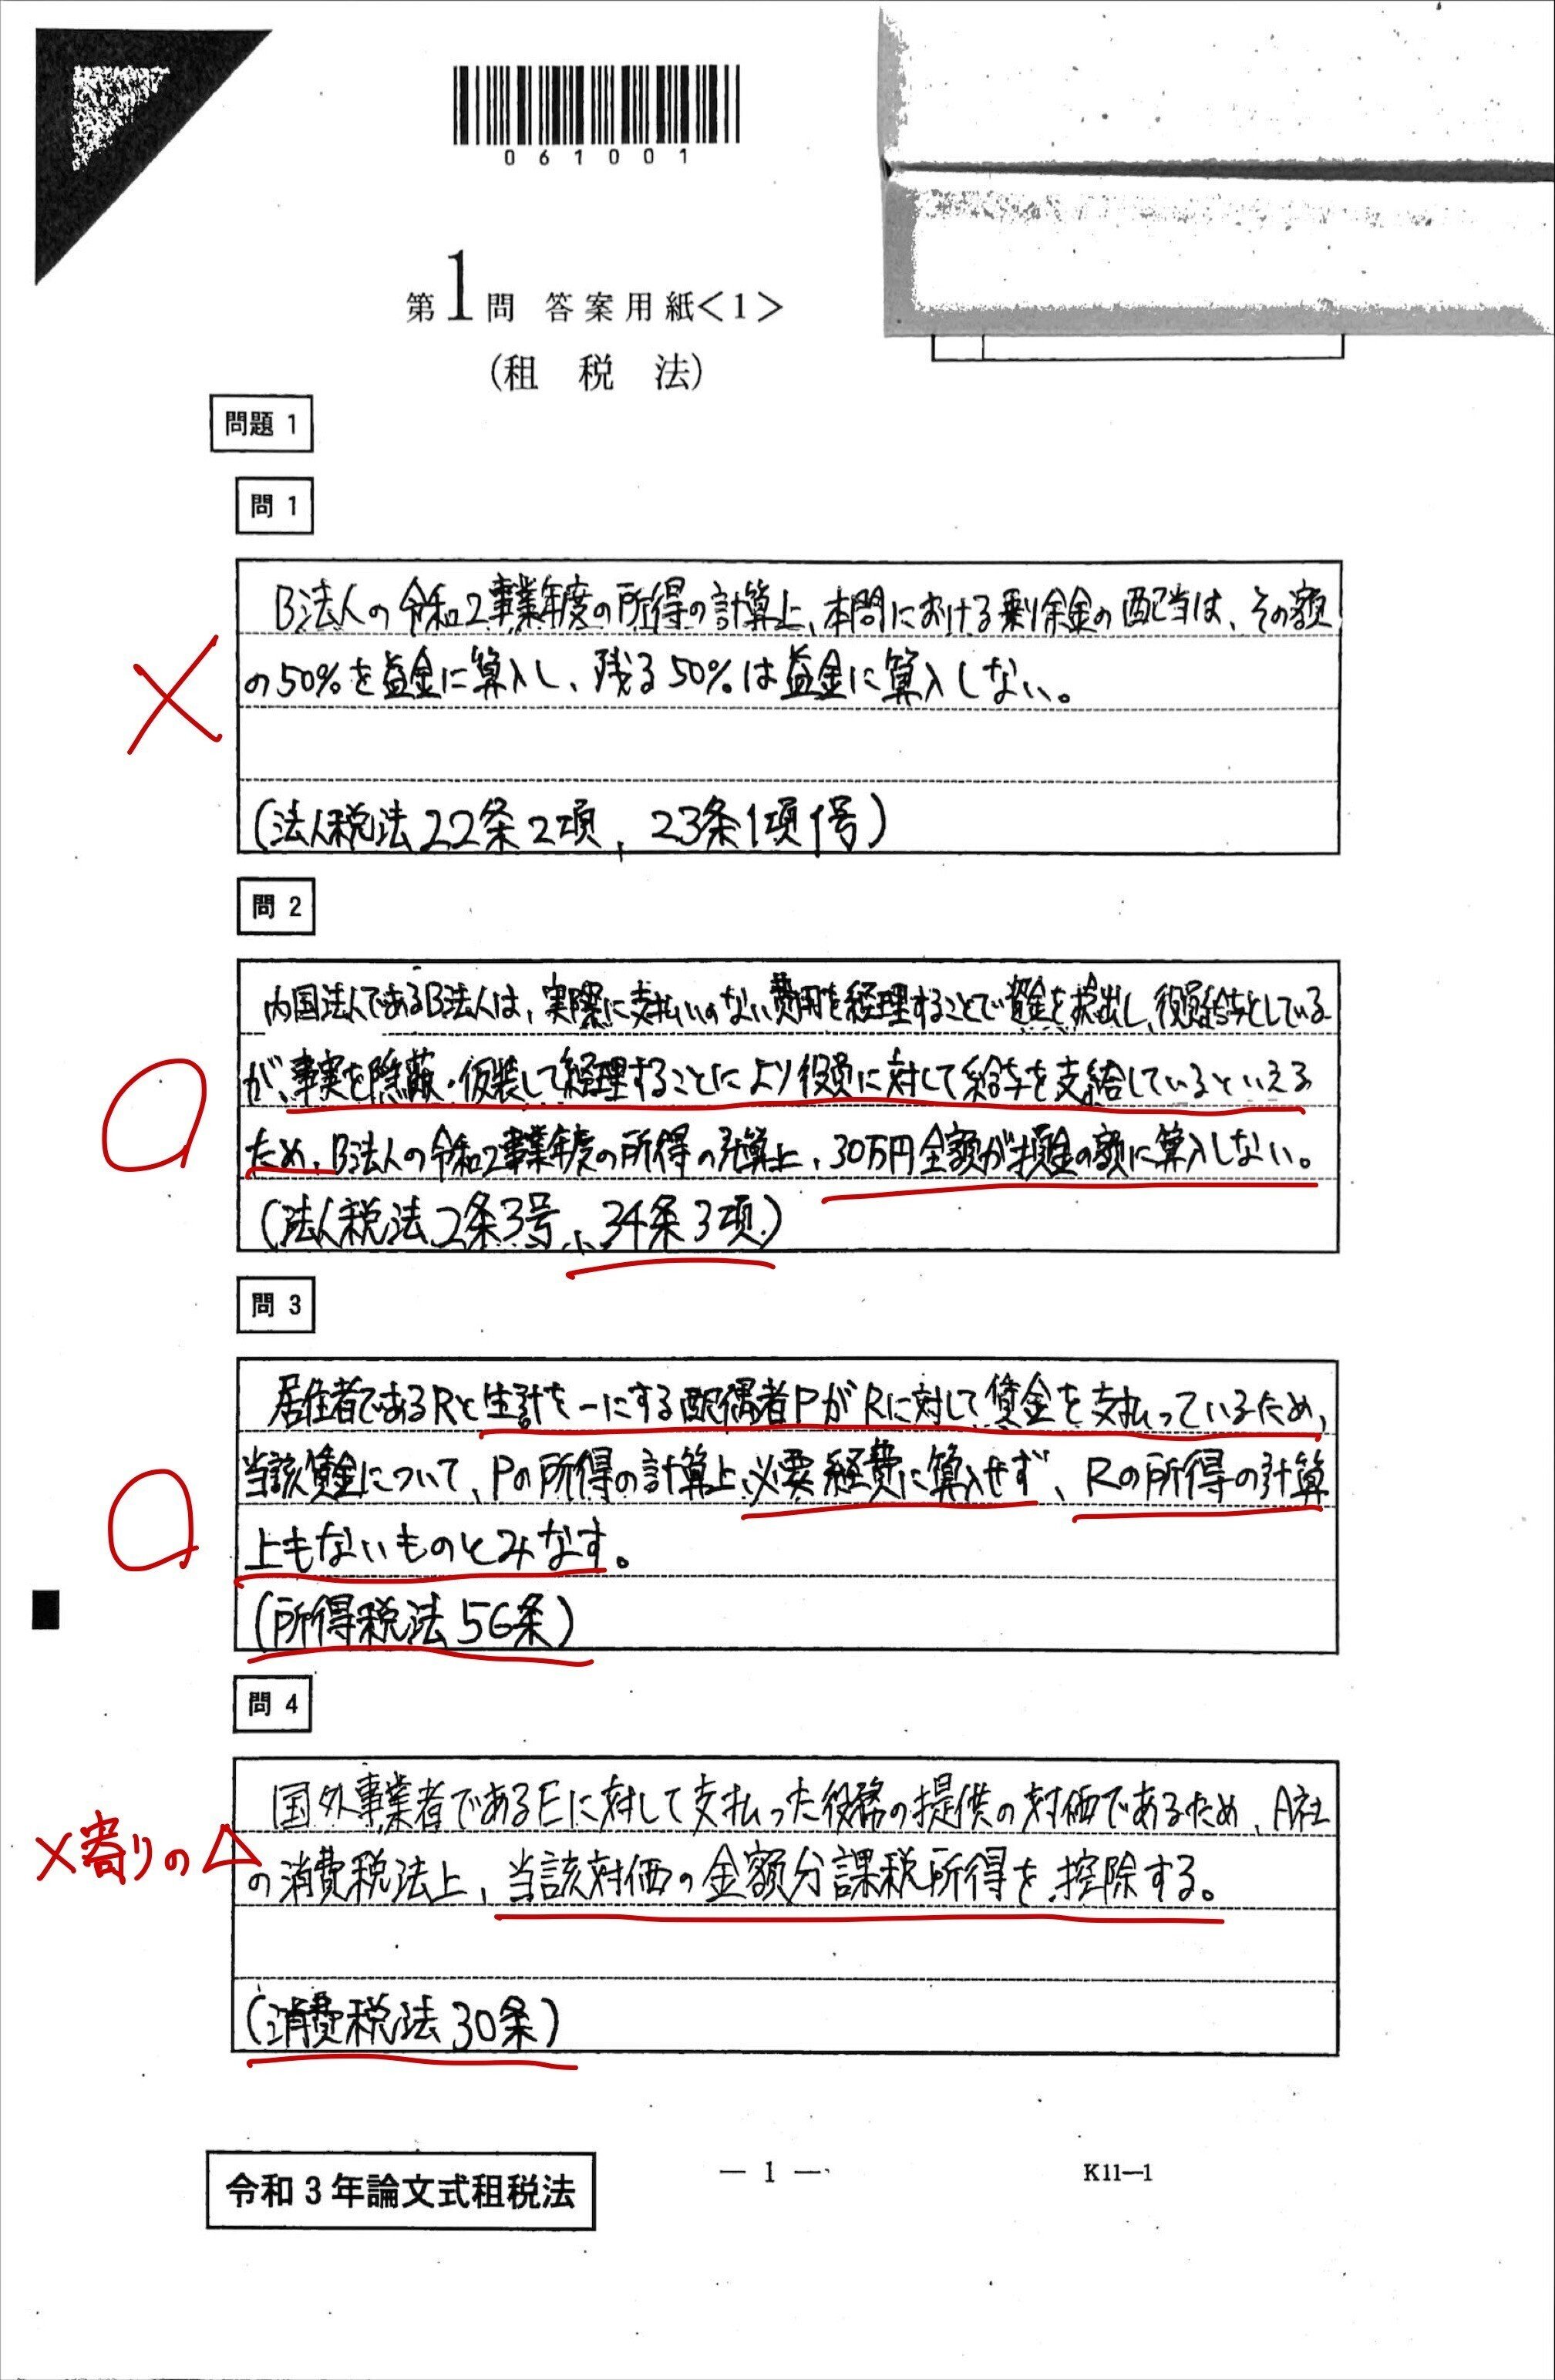 061001
第1問 答案用紙<1>
(租税法)
問題 1
問 1
B法人の令和2事業年度の所得の計算上、本問における剰余金の配当は、その額
の50%を益金に算入し、残る50%は益金に算入しない。
(法人税法22条2項、23条1項1号)
問 2
内国法人であるB法人は、実際に支払いのない費用を経理することで資金を捻出し、役員給与としている
が、事実を隠蔽・仮装して経理することにより役員に対して給与を支給しているといえる
ため、B法人の令和2事業年度の所得の計算上、30万円全額が損金の額に算入しない。
(法人税法2条3号、34条3項)
問 3
居住者であるRと生計を一にする配偶者PがRに対して賃金を支払っているため、
当該賃金について、Pの所得の計算上必要経費に算入せず、Rの所得の計算
上もないものとみなす。
(所得税法56条)
問 4
国外事業者であるEに対して支払った役務の提供の対価であるため、A社
×寄りの△
の消費税法上、当該対価の金額分課税所得を控除する。
(消費税法30条)
令和3年論文式租税法
— 1 —
K11—1